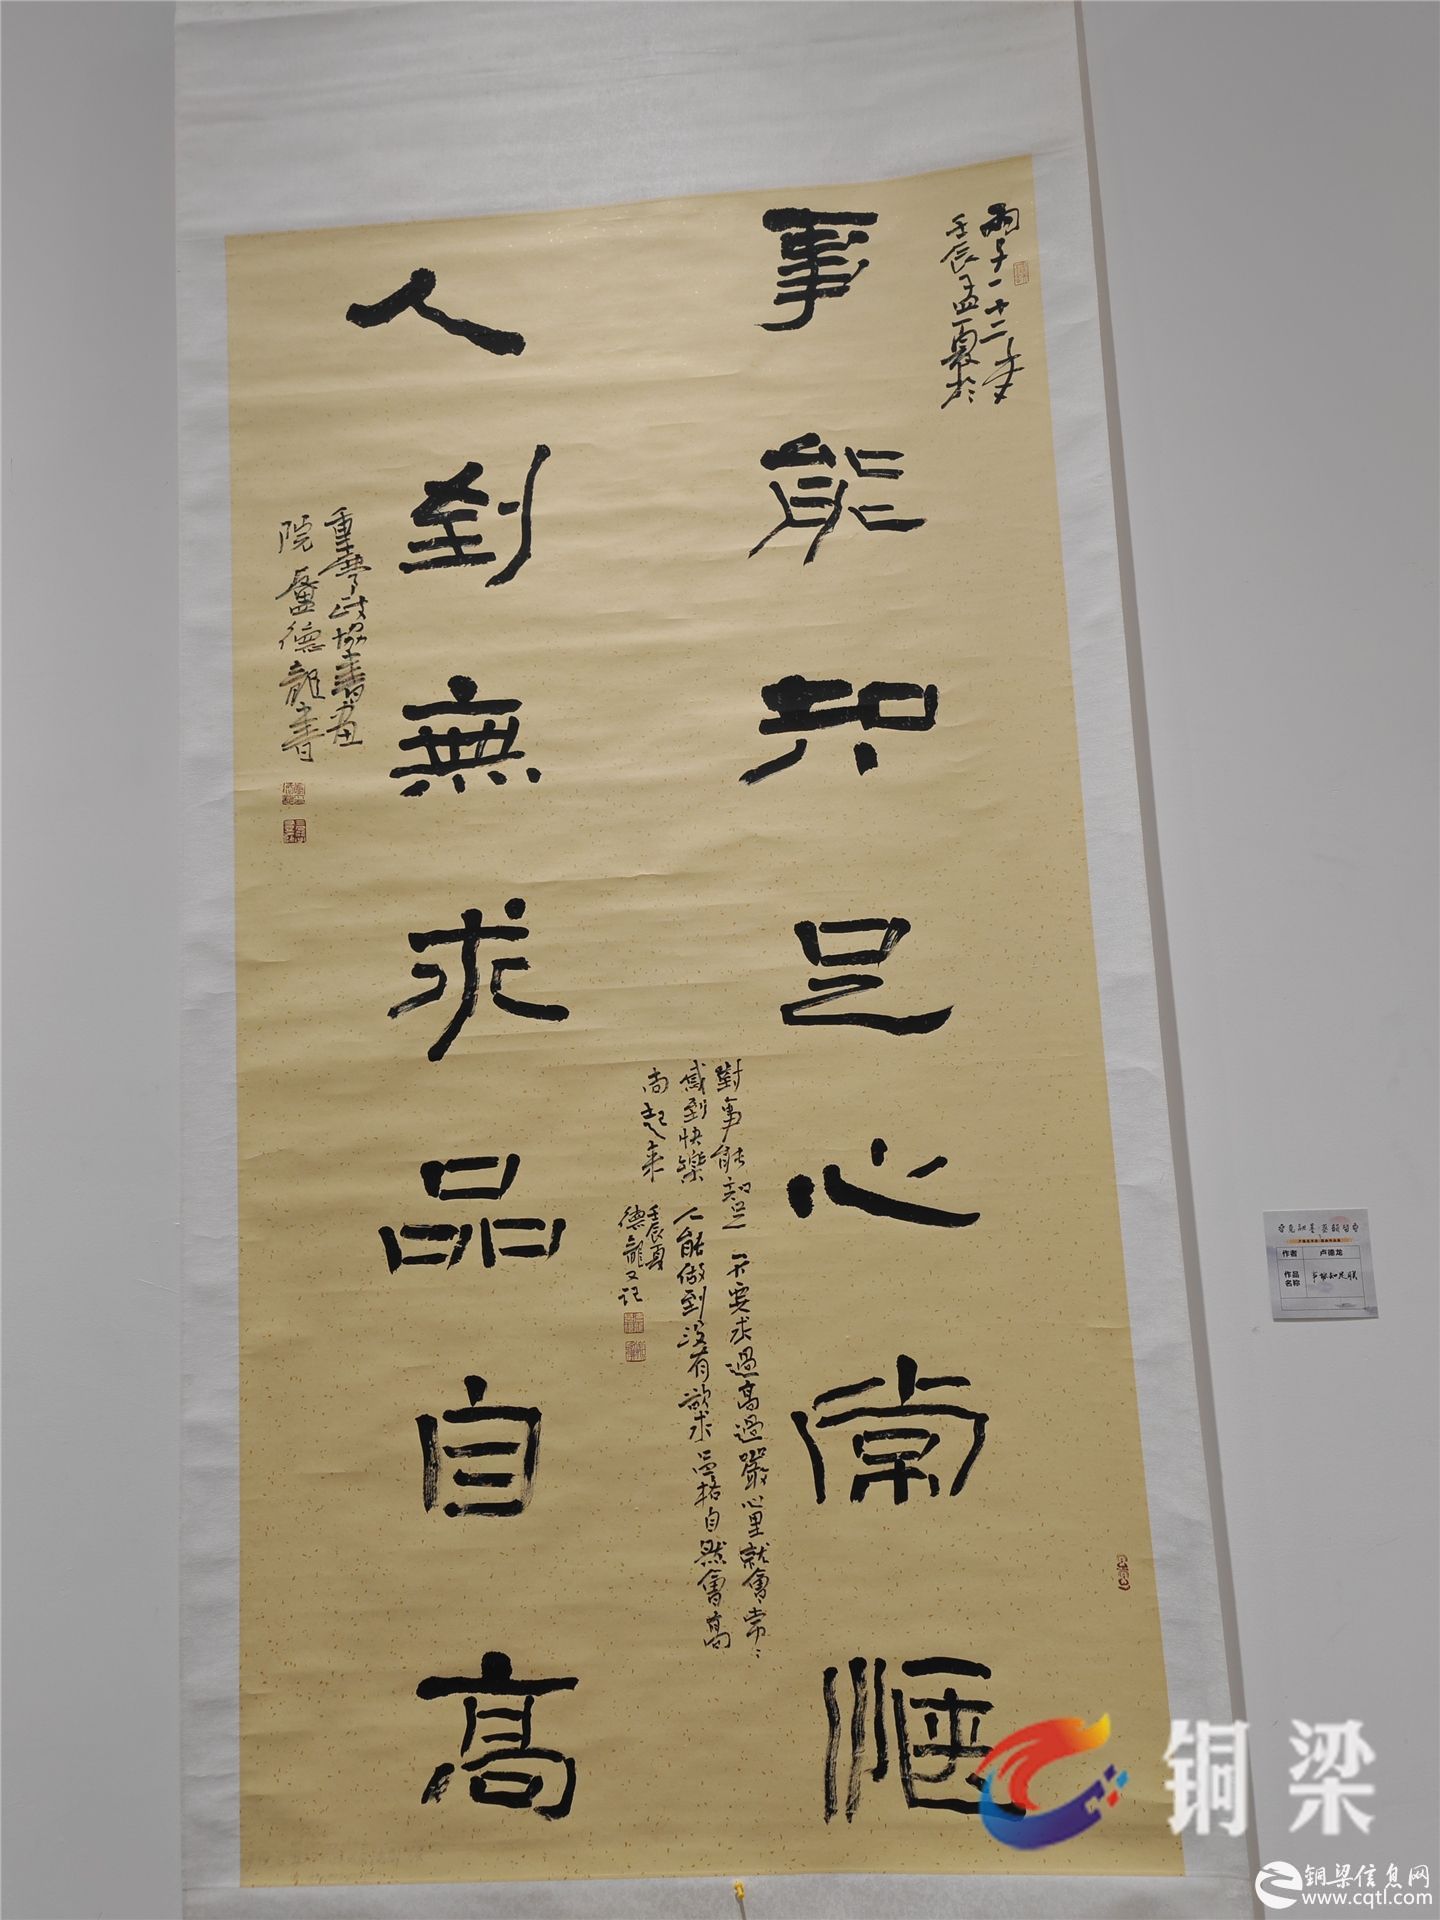 事能知足心常惬
壬辰孟夏於
對事能知足不要求過高過嚴心里就會常々
感到快樂人能做到没有欲求品格自然會高
尚起来
壬辰夏
德龍又记
人到無求品自高
重慶政協書画
院盧德龍書
作者 卢德龙
作品名称 事能知足联
铜梁
铜梁信息网
www.cqtl.com